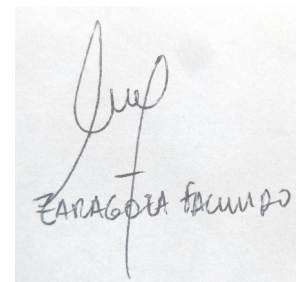 ZARAGOZA FACUNDO